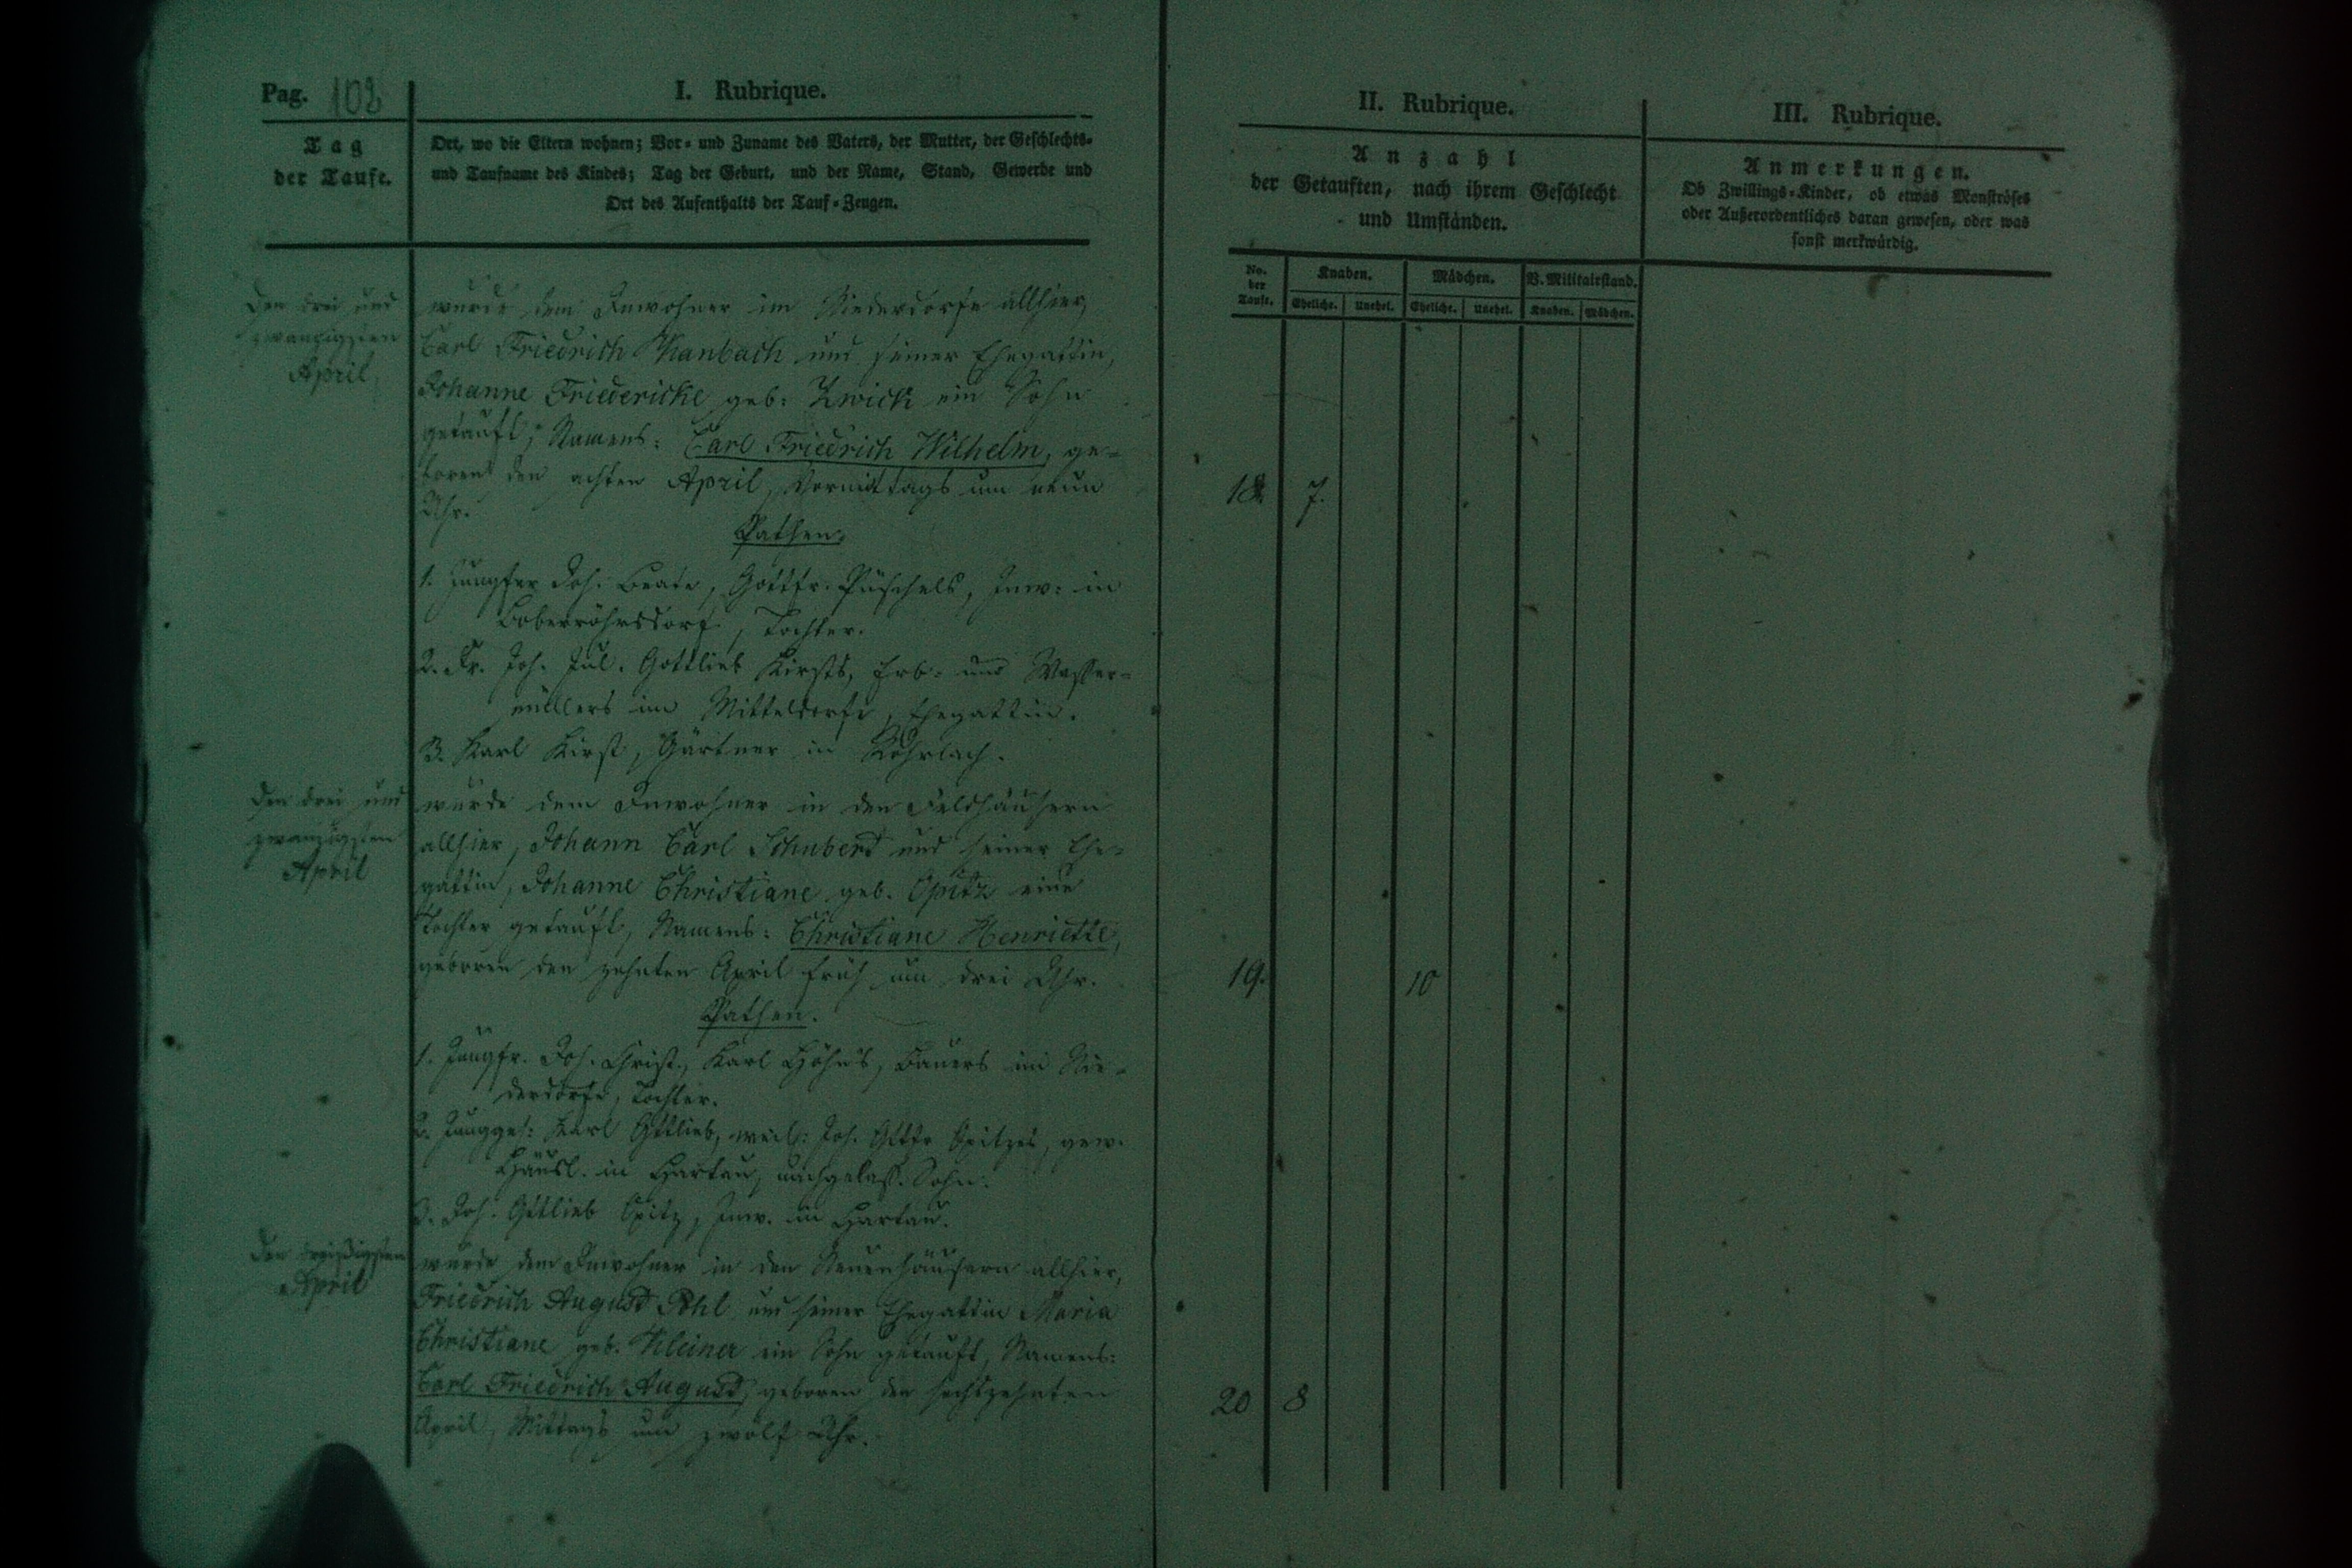 Pag. 102
I. Rubrique.
Tag
der Taufe.
Ort, wo die Eltern wohnen; Vor- und Zuname des Vaters, der Mutter, der Geschlechts-
und Taufname des Kindes; Tag der Geburt, und der Name, Stand, Gewerbe und
Ort des Aufenthalts der Tauf-Zeugen.
Den drei und
zwanzigsten
April
wurde dem Inwohner im Niederdorfe allhier,
Carl Friedrich und seiner Ehegattin,
Johanne Friedericke geb: Zwick ein Sohn
getauft, Namens: Carl Friedrich Wilhelm, ge-
boren den achten April, Vormittags um neun
Uhr.
Pathen.
1. Jungfer Joh. Beate, Gottfr. Püschels, Inw: in
Boberröhrsdorf, Tochter.
2. Fr. Joh. Jul. Gottlieb Kirsts, Erb- und Wasser-
müllers im Mitteldorfe, Ehegattin.
3. Karl Kirst, Gärtner in Rohrlach.
Den drei und
zwanzigsten
April
wurde dem Inwohner in den Feldhäusern
allhier, Johann Carl Schubert und seiner Ehe-
gattin, Johanne Christiane geb. Opitz eine
Tochter getauft, Namens: Christiane Henriette,
geboren den zehnten April früh um drei Uhr.
Pathen.
1. Jungfr. Joh. Christ., Karl Höhn's, Bauers im Nie-
derdorfe, Tochter.
2. Jungges: Karl Gttlieb, weil: Joh. Gttfr Opitzes, gew.
Häusl. in Hartau, nachgelass. Sohn.
3. Joh. Gttlieb Opitz, Inw. in Hartau.
Den dreißigsten
April
wurde dem Inwohner in den Neuenhäusern allhier,
Friedrich August Pohl und seiner Ehegattin Maria
Christiane geb. Kleiner ein Sohn getauft, Namens:
Carl Friedrich August, geboren den sechszehnten
April, Mittags um zwölf Uhr.
II. Rubrique.
Anzahl
der Getauften, nach ihrem Geschlecht
und Umständen.
No. der Taufe.
Knaben. Mädchen. V. Militairstand.
Eheliche. Unehel. Eheliche. Unehel. Knaben. Mädchen.
18. 7.
19. 10
20 8
III. Rubrique.
Anmerkungen.
Ob Zwillings-Kinder, ob etwas Monströses
oder Außerordentliches daran gewesen, oder was
sonst merkwürdig.